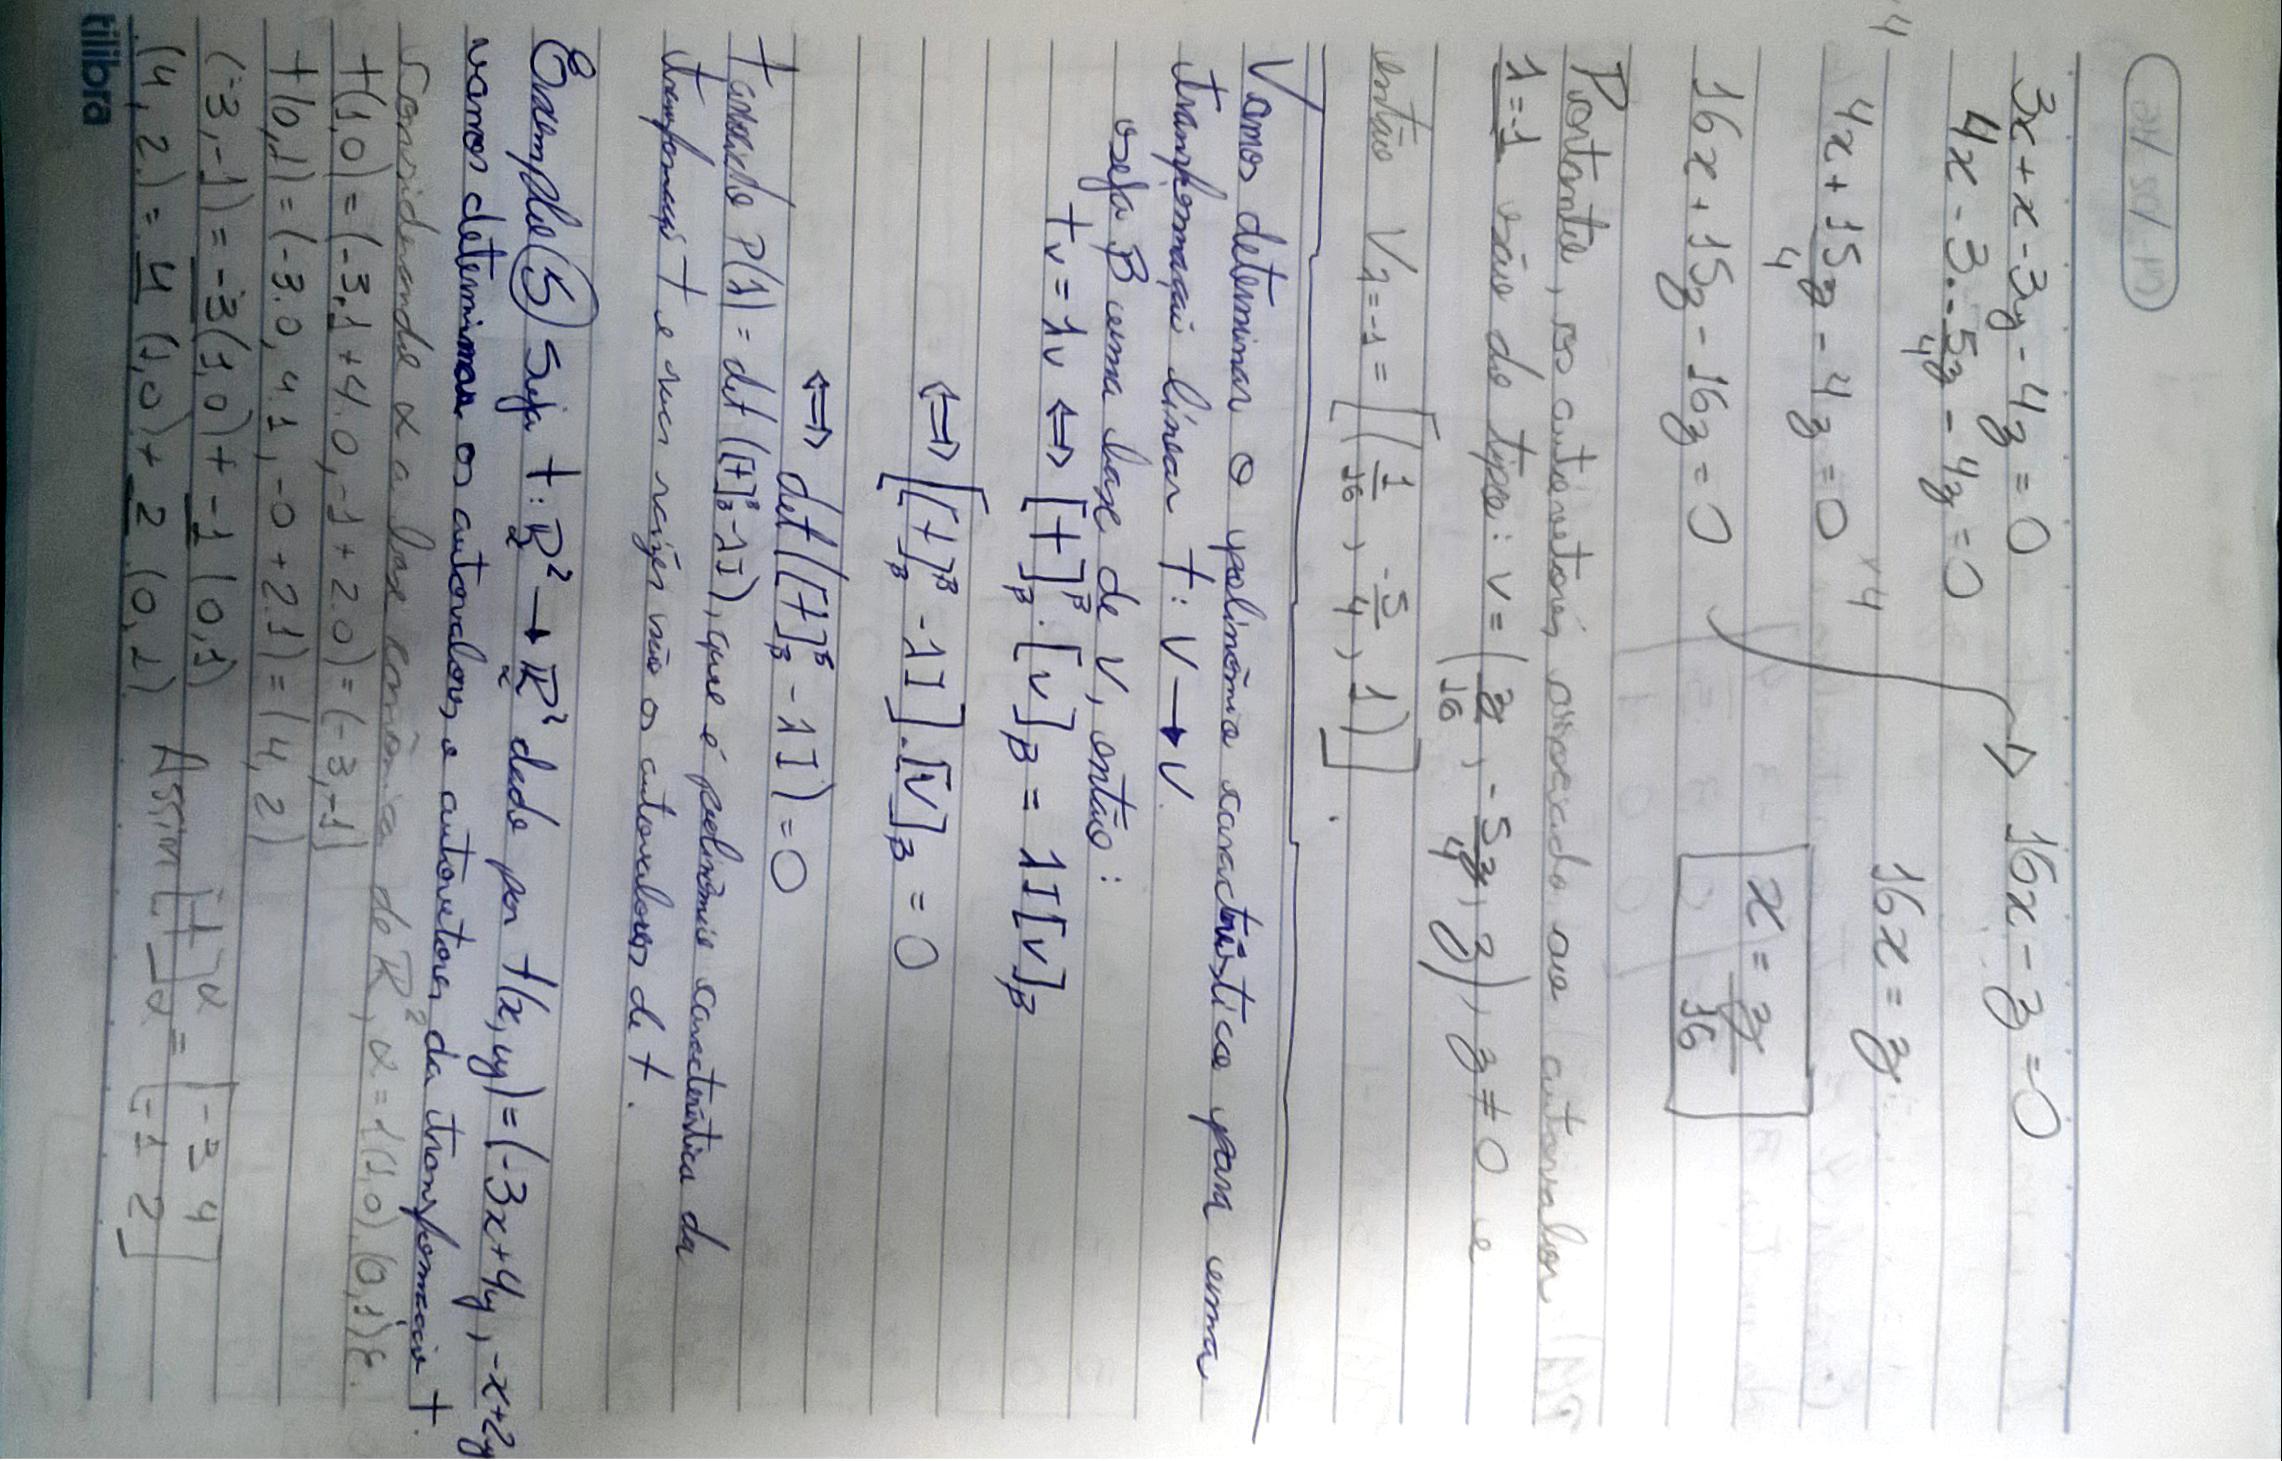 3x+x-3y-4z=0
4x-3.-5z/4-4z=0
4x+15z/4-4z=0 ×4
16x+15z-16z=0
16x-z=0
16x=z
x=z/16
Portanto, os autovetores associado ao autovalor
λ=-1 são do tipo: v=(z/16, -5z/4, z), z≠0 e
então Vλ=-1=[(1/16, -5/4, 1)].
Vamos determinar o polinômio característico para uma
transformação linear T: V→V.
seja β uma base de V, então:
Tv=λv ⇔ [T]ββ.[v]β=λI[v]β
⇔ [[T]ββ-λI].[v]β=0
⇔ det([T]ββ-λI)=0
P(λ)=det([T]ββ-λI), que é polinômio característica da
transformaçã T e suas raízes são os autovalores de T.
Exemplo 5 Seja T: R²→R² dado por T(x,y)=(-3x+4y, -x+2y
vamos determinar os autovalores e autovetores da transformação T.
Considerando α a base canônica de R², α={(1,0),(0,1)}.
T(1,0)=(-3.1+4.0,-1+2.0)=(-3,-1)
T(0,1)=(-3.0,4.1,-0+2.1)=(4,2)
(-3,-1)=-3(1,0)+-1(0,1)
(4,2)=4(1,0)+2(0,1) Assim [T]αα=[-3 4
-1 2]
tilibra